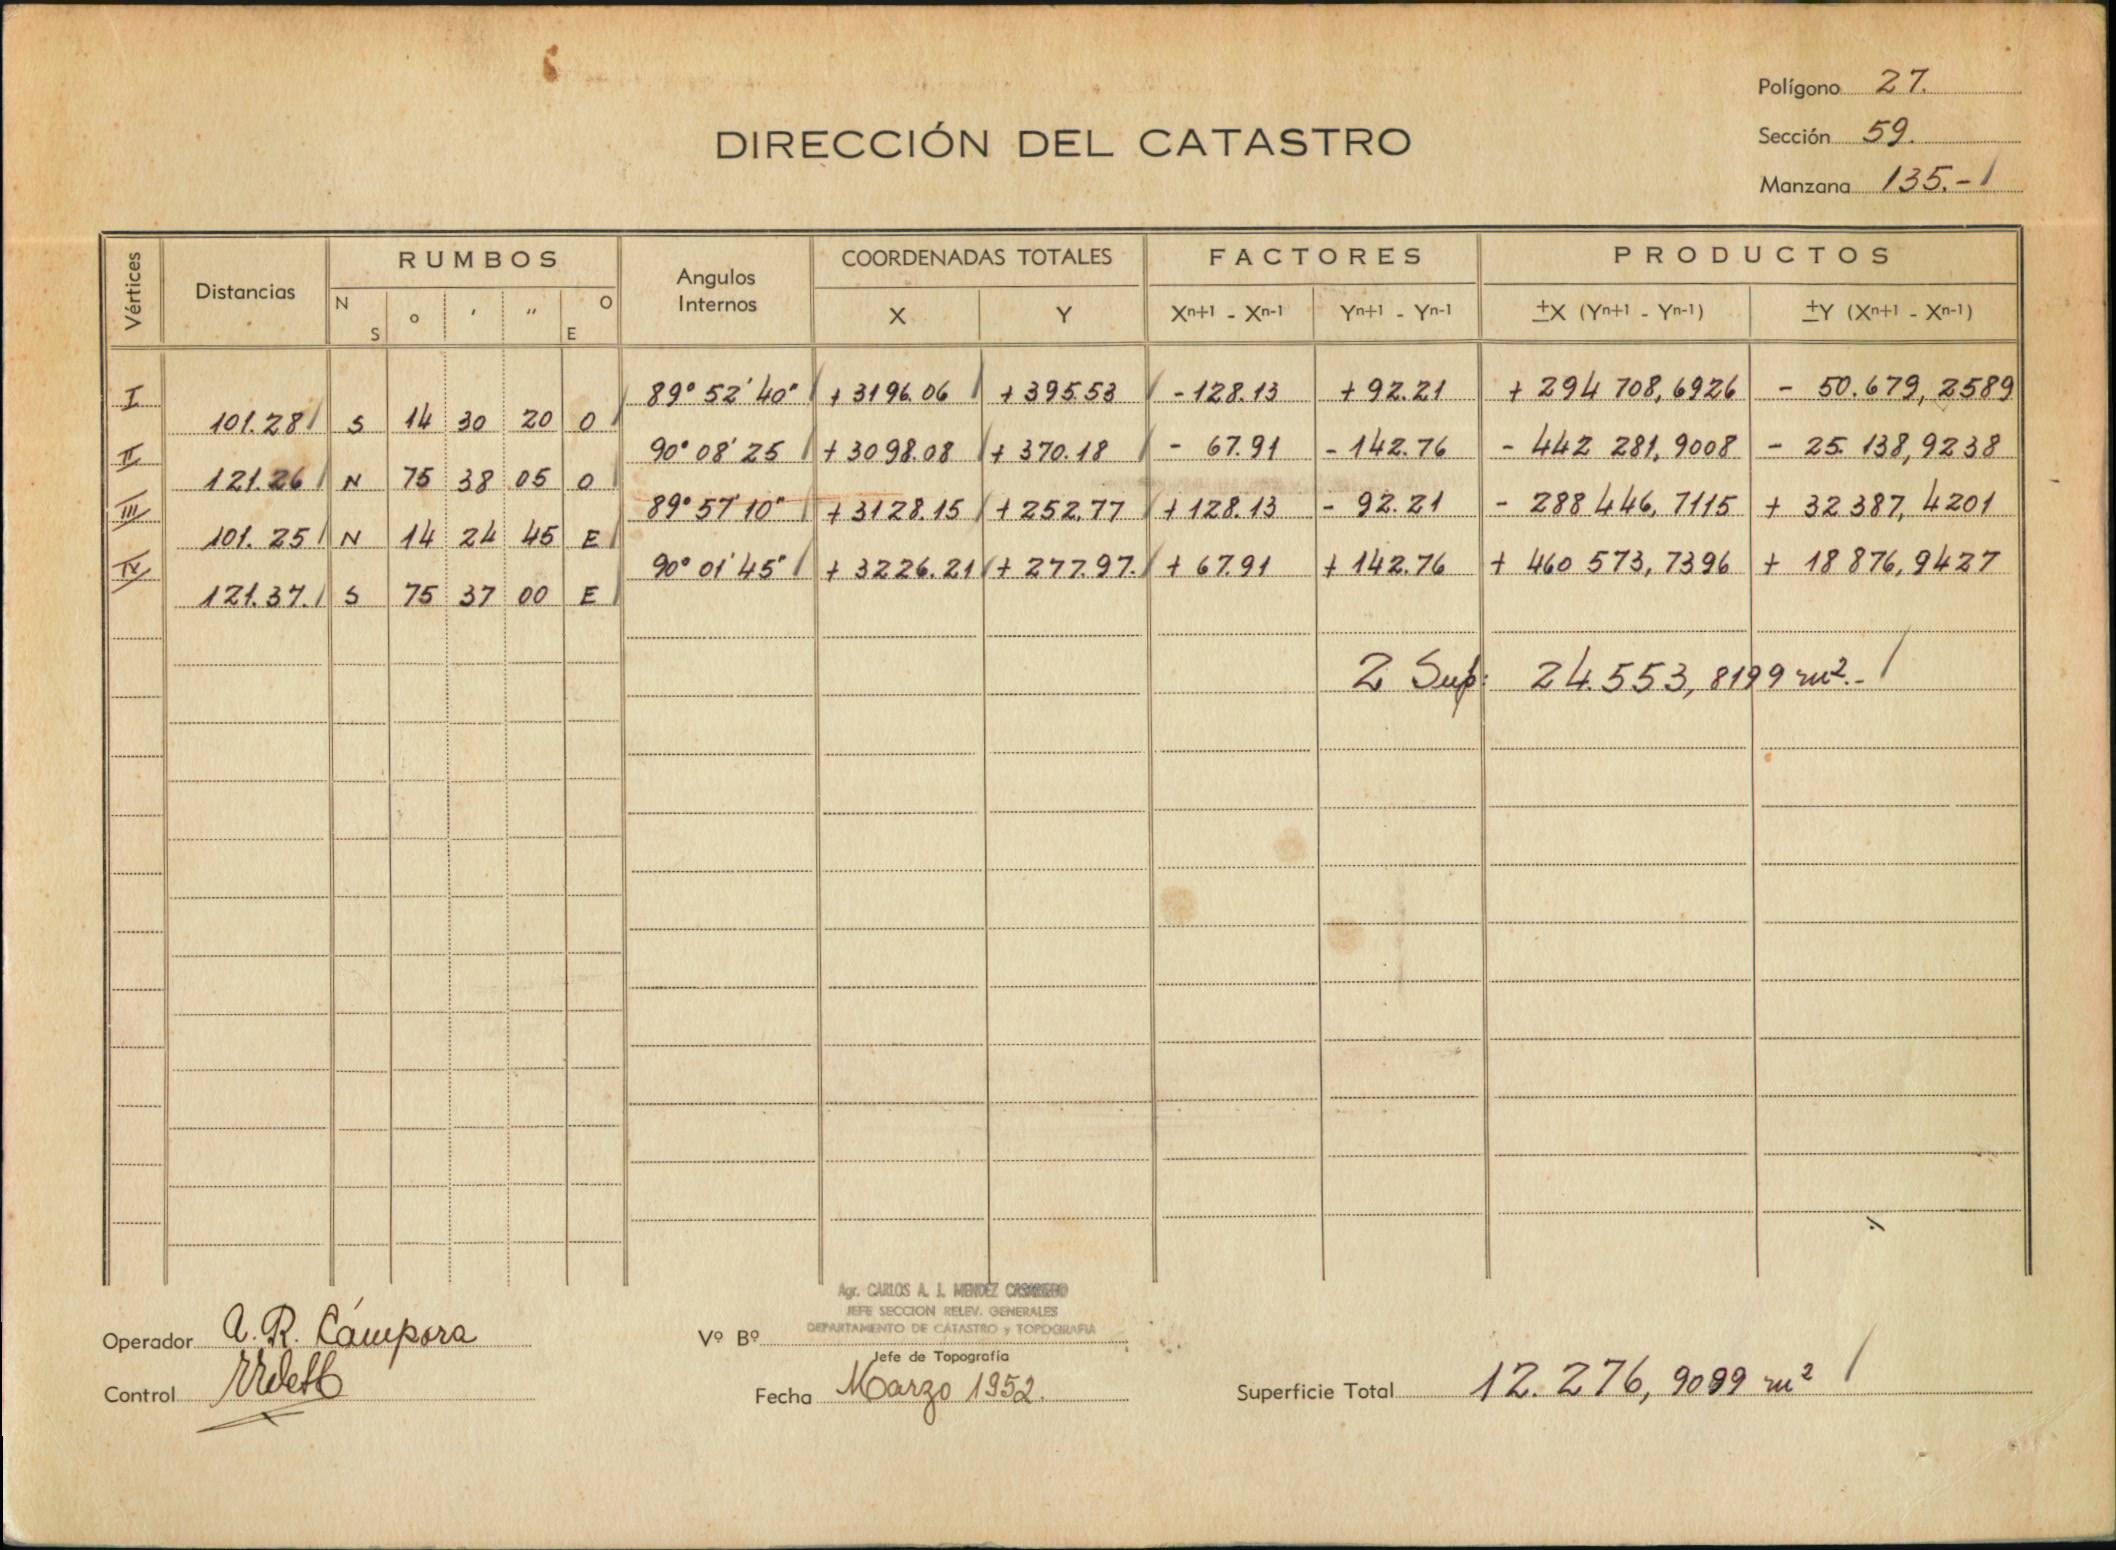 Polígono 27.
DIRECCIÓN DEL CATASTRO
Sección 59.
Manzana 135.-/
Vértices Distancias RUMBOS Angulos Internos COORDENADAS TOTALES FACTORES PRODUCTOS
N S o ' " O E X Y Xn+1 - Xn-1 Yn+1 - Yn-1 ±X (Yn+1 - Yn-1) ±Y (Xn+1 - Xn-1)
I 89° 52' 40" + 3196.06 + 395.53 - 128.13 + 92.21 + 294 708,6926 - 50.679,2589
101.28 S 14 30 20 O
II 90° 08' 25 + 3098.08 + 370.18 - 67.91 - 142.76 - 442 281,9008 - 25.138,9238
121.26 N 75 38 05 O
III 89° 57' 10" + 3128.15 + 252.77 + 128.13 - 92.21 - 288 446,7115 + 32 387,4201
101.25 N 14 24 45 E
IV 90° 01' 45" + 3226.21 + 277.97. + 67.91 + 142.76 + 460 573,7396 + 18 876,9427
121.37. S 75 37 00 E
2 Sup: 24.553,8199 m².-
Agr. CARLOS A. J. MENDEZ
JEFE SECCION RELEV. GENERALES
DEPARTAMENTO DE CATASTRO y TOPOGRAFIA
Operador A. R. Cámpora Vº Bº
Jefe de Topografía
Control Fecha Marzo 1952. Superficie Total 12.276,9099 m²